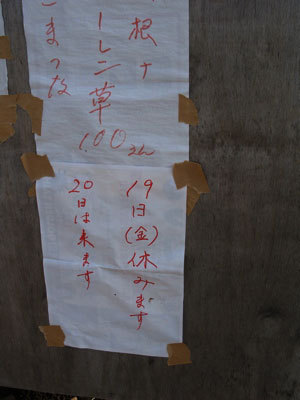 根ナ
ーレニ草
こまつな
100えん
19日(金)休みます
20日は来ます